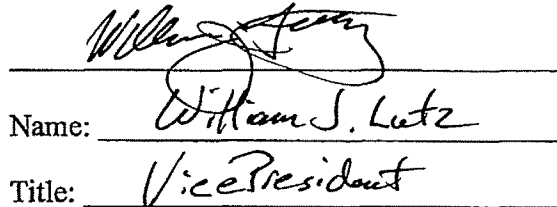 Name: William J. Lutz
Title: Vice President